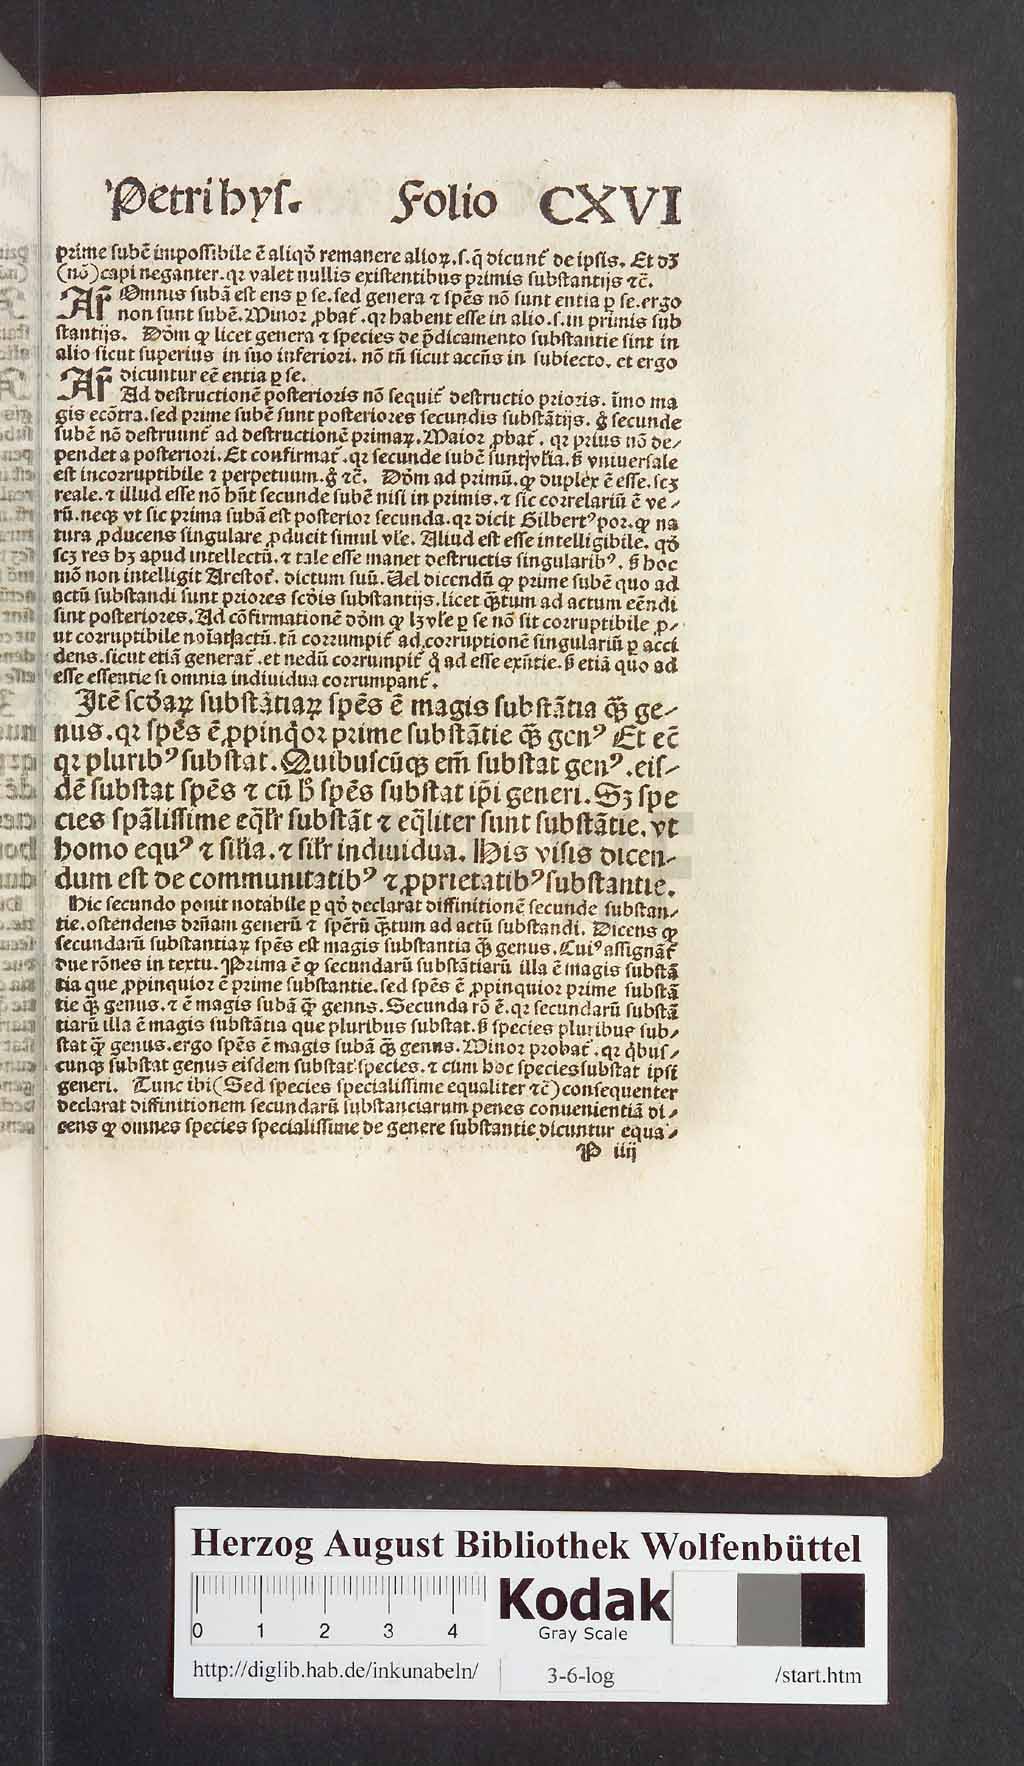 Petri hys. Folio CXVI
prime subē impossibile ē aliqď remanere alioꝝ.s.q̄ dicunt᷑ de ipsis. Et dꝫ
(nō) capi neganter. qꝛ valet nullis existentibus primis substantijs ⁊c̄.
Ar̄ Omnis subā est ens ꝑ se. sed genera ⁊ spēs nō sunt entia ꝑ se. ergo
non sunt subē. Minor ꝓbat᷑. qꝛ habent esse in alio .s. in primis sub
stantijs. Dōm ꝙ licet genera ⁊ species de p̄dicamento substantie sint in
alio sicut superius in suo inferiori. nō tn̄ sicut accn̄s in subiecto. et ergo
dicuntur eē entia ꝑ se.
Ar̄ Ad destructionē posterioris nō sequit᷑ destructio prioris. īmo ma
gis ecōtra. sed prime subē sunt posteriores secundis substātijs. g̊ secunde
subē nō destruunt᷑ ad destructionē primaꝝ. Maior ꝓbat᷑. qꝛ prius nō de⸗
pendet a posteriori. Et confirmat᷑. qꝛ secunde subē sunt vl̄ia. ꝭ vniuersale
est incorruptibile ⁊ perpetuum. g̊ ⁊c̄. Dōm ad primū. ꝙ duplex ē esse. scꝫ
reale. ⁊ illud esse nō hn̄t secunde subē nisi in primis. ⁊ sic correlariū ē ve⸗
rū. neqꝫ vt sic prima subā est posterior secunda. qꝛ dicit Gilbertꝰ por. ꝙ na
tura ꝓducens singulare ꝓducit simul vl̄e. Aliud est esse intelligibile. qď
scꝫ res hꝫ apud intellectū. ⁊ tale esse manet destructis singularibꝰ. ꝭ hoc
mō non intelligit Arestot᷑. dictum suū. Uel dicendū ꝙ prime subē quo ad
actū substandi sunt priores scďis substantijs. licet qꝫtum ad actum eēndi
sint posteriores. Ad cōfirmationē dōm ꝙ lꝫ vl̄e ꝑ se nō sit corruptibile ꝓ⸗
ut corruptibile noīat actū. tn̄ corrumpit᷑ ad corruptionē singulariū ꝑ acci
dens. sicut etiā generat᷑. et nedū corrumpit᷑ q̊ ad esse exn̄tie. ꝭ etiā quo ad
esse essentie si omnia indiuidua corrumpant᷑.
Itē scďaꝝ substātiaꝝ spēs ē magis substātia qꝫ ge⸗
nus. qꝛ spēs ē ꝓpinq̊or prime substātie qꝫ genꝰ Et eē
qꝛ pluribꝰ substat. Quibuscūqꝫ em̄ substat genꝰ. eis⸗
dē substat spēs ⁊ cū ħ spēs substat ip̄i generi. Sꝫ spe
cies spālissime eq̄lr̄ substāt ⁊ eq̄liter sunt substātie. vt
homo equꝰ ⁊ sil̄ia. ⁊ sil̄r indiuidua. His visis dicen⸗
dum est de communitatibꝰ ⁊ ꝓprietatibꝰ substantie.
Hic secundo ponit notabile ꝑ qď declarat diffinitionē secunde substan⸗
tie. ostendens dr̄iam generū ⁊ spērū qꝫtum ad actū substandi. Dicens ꝙ
secundarū substantiaꝝ spēs est magis substantia qꝫ genus. Cuiꝰ assignāt᷑
due rōnes in textu. Prima ē ꝙ secundarū substātiarū illa ē magis substā
tia que ꝓpinquior ē prime substantie. sed spēs ē ꝓpinquior prime substā
tie qꝫ genus. ⁊ ē magis subā qꝫ genus. Secunda rō ē. qꝛ secundarū substā
tiarū illa ē magis substātia que pluribus substat. ꝭ species pluribus sub⸗
stat qꝫ genus. ergo spēs ē magis subā qꝫ genus. Minor probat᷑. qꝛ q̇bus⸗
cunqꝫ substat genus eisdem substat species. ⁊ cum hoc species substat ipsi
generi. Tunc ibi (Sed species specialissime equaliter ⁊c̄) consequenter
declarat diffinitionem secundarū substanciarum penes conuenientiā di⸗
cens ꝙ omnes species specialissime de genere substantie dicuntur equa⸗
P iiij
Herzog August Bibliothek Wolfenbüttel
0 1 2 3 4
Kodak
Gray Scale
http://diglib.hab.de/inkunabeln/ 3-6-log /start.htm